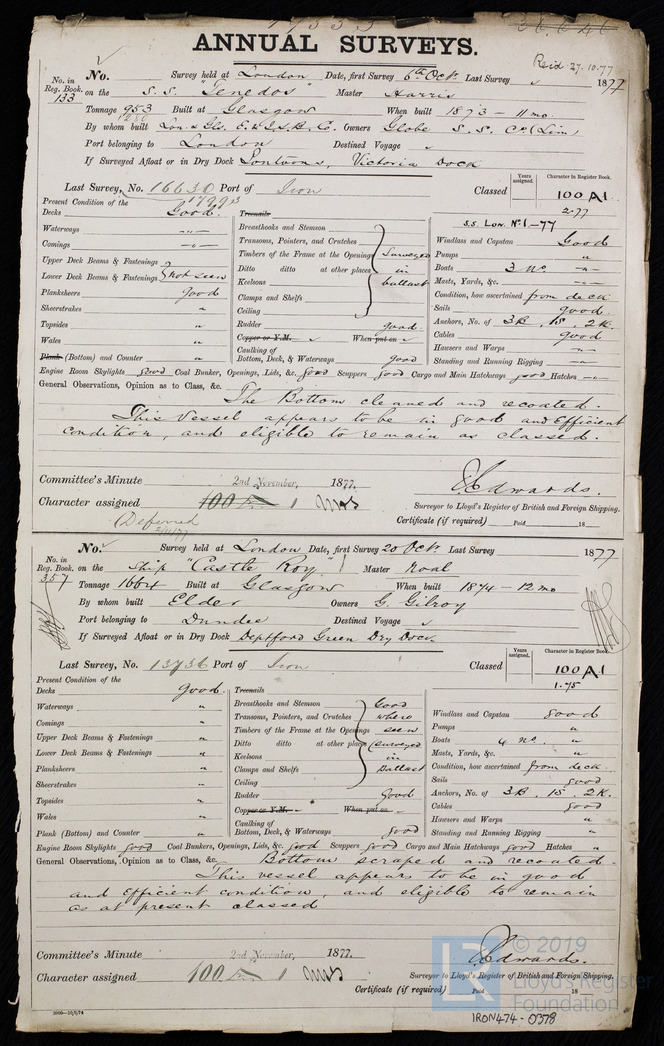 ANNUAL SURVEYS.
Recd 27.10.77
No. Survey held at London Date, first Survey 6th Oct. Last Survey 1877
No. in Reg. Book. 133 on the S.S. "Tenedos" Master Harris
Tonnage 953 Built at Glasgow When built 1873 - 11 mo.
By whom built Lon. & Gls. E. & I. S. B. Co. Owners Globe S. S. Co (Lim)
Port belonging to London Destined Voyage
If Surveyed Afloat or in Dry Dock Pontoons, Victoria Dock
Last Survey, No. 16630 Port of Iron Classed Years assigned. Character in Register Book. 100 A1
17993
2-77
Present Condition of the
Decks Good. Treenails S.S. Lon. No 1-77
Waterways " Breasthooks and Stemson Windlass and Capstan Good
Comings " Transoms, Pointers, and Crutches Pumps "
Upper Deck Beams & Fastenings Timbers of the Frame at the Openings Surveyed Boats 3 no. "
Lower Deck Beams & Fastenings not seen Ditto ditto at other places in Masts, Yards, &c. "
Planksheers good Keelsons ballast Condition, how ascertained from deck
Sheerstrakes " Clamps and Shelfs Sails good
Topsides " Ceiling Anchors, No. of 3B, 1S, 2K.
Wales " Rudder good. Cables good
Plank (Bottom) and Counter " Copper or Y.M. When put on Hawsers and Warps "
Caulking of Bottom, Deck, & Waterways good Standing and Running Rigging "
Engine Room Skylights good Coal Bunker, Openings, Lids, &c. good Scuppers good Cargo and Main Hatchways good Hatches "
General Observations, Opinion as to Class, &c. The Bottom cleaned and recoated.
This Vessel appears to be in good and Efficient
condition, and eligible to remain as classed.
Committee's Minute 2nd November, 1877.
Character assigned 100 A 1
Deferred
Edwards.
Surveyor to Lloyd's Register of British and Foreign Shipping.
Certificate (if required) Paid 18
No. Survey held at London Date, first Survey 20 Oct. Last Survey 1877
No. in Reg. Book. 357 on the Ship "Castle Roy" Master Roal
Tonnage 1664 Built at Glasgow When built 1874 - 12 mo
By whom built Elder Owners G. Gilroy
Port belonging to Dundee Destined Voyage
If Surveyed Afloat or in Dry Dock Deptford Green Dry Dock
Last Survey, No. 13736 Port of Iron Classed Years assigned. Character in Register Book. 100 A1
1.75
Present Condition of the
Decks good. Treenails
Waterways " Breasthooks and Stemson Good Windlass and Capstan good
Comings " Transoms, Pointers, and Crutches where Pumps "
Upper Deck Beams & Fastenings " Timbers of the Frame at the Openings seen Boats 4 no. "
Lower Deck Beams & Fastenings " Ditto ditto at other places (surveyed Masts, Yards, &c. "
Planksheers " Keelsons in Condition, how ascertained from deck
Sheerstrakes " Clamps and Shelfs Ballast Sails good
Topsides " Ceiling Anchors, No. of 3B, 1S, 2K.
Wales " Rudder Good Cables good
Plank (Bottom) and Counter " Copper or Y.M. When put on Hawsers and Warps "
Caulking of Bottom, Deck, & Waterways good Standing and Running Rigging "
Engine Room Skylights good Coal Bunkers, Openings, Lids, &c. good Scuppers good Cargo and Main Hatchways good Hatches "
General Observations, Opinion as to Class, &c. Bottom scraped and recoated.
This vessel appears to be in good
and Efficient condition, and eligible to remain
as at present classed
Committee's Minute 2nd November, 1877.
Character assigned 100 A 1
Edwards.
Surveyor to Lloyd's Register of British and Foreign Shipping.
Certificate (if required) Paid 18
2000—10/6/74
IRON474-0378
LR © 2019
Lloyd's Register
Foundation